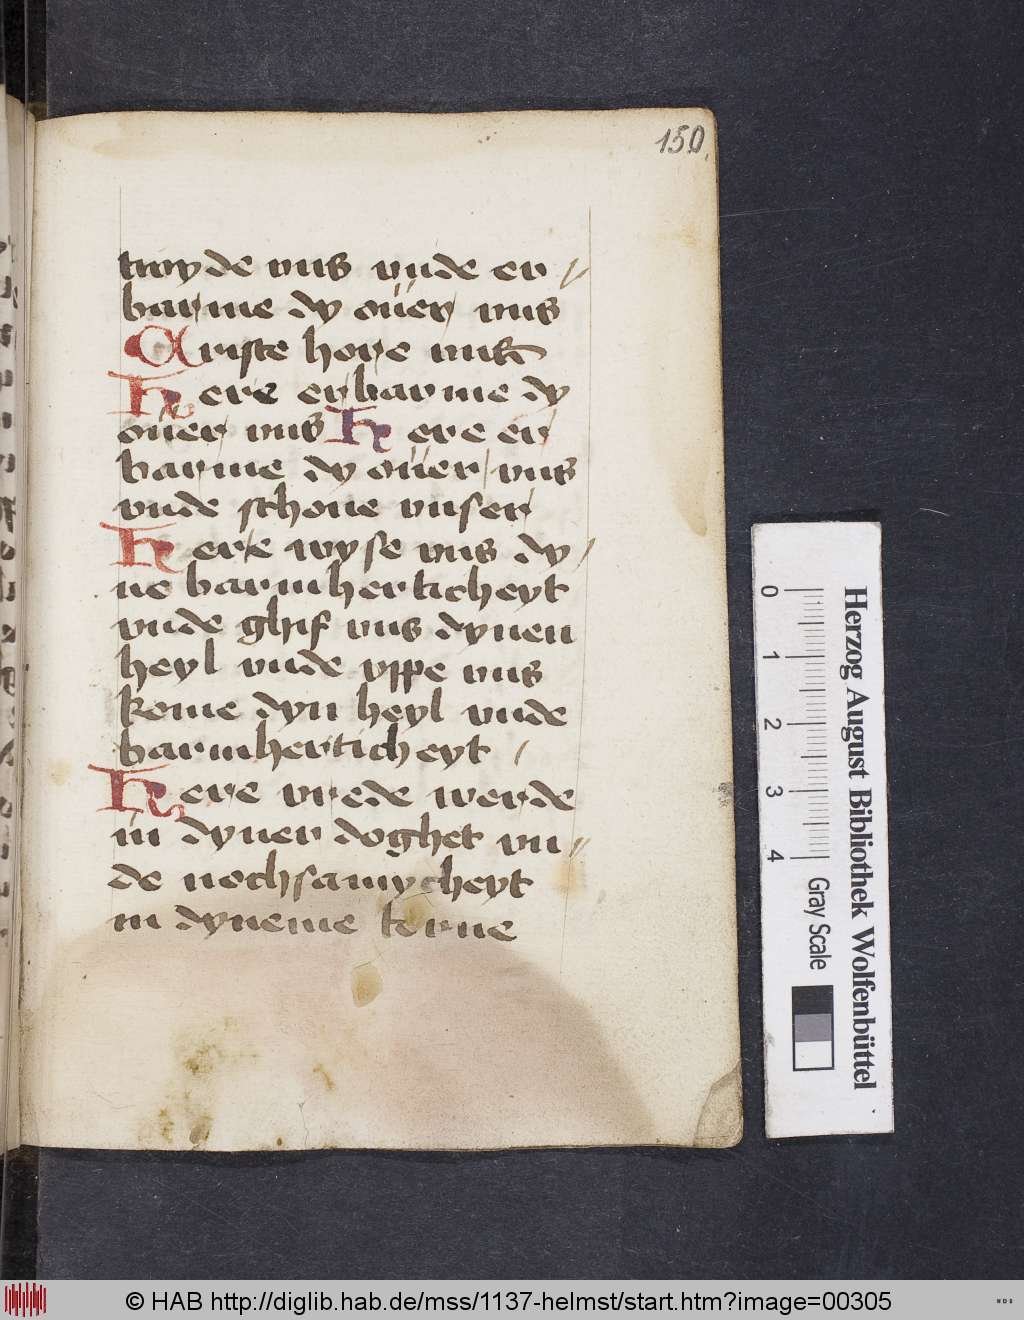 150
troyde vns vnde er
barme dy ouer vns
Criste hore vns
Here erbarme dy
ouer vns Here er
barme dy ouer vns
vnde schone vnser
Here wyse vns dy
ne barmherticheyt
vnde ghif vns dynen
heyl vnde vppe vns
kome dyn heyl vnde
barmherticheyt
Here vrede werde
in dyner doghet vn
de nochsamycheyt
in dyneme torne
Herzog August Bibliothek Wolfenbüttel
0 1 2 3 4 Gray Scale
© HAB http://diglib.hab.de/mss/1137-helmst/start.htm?image=00305